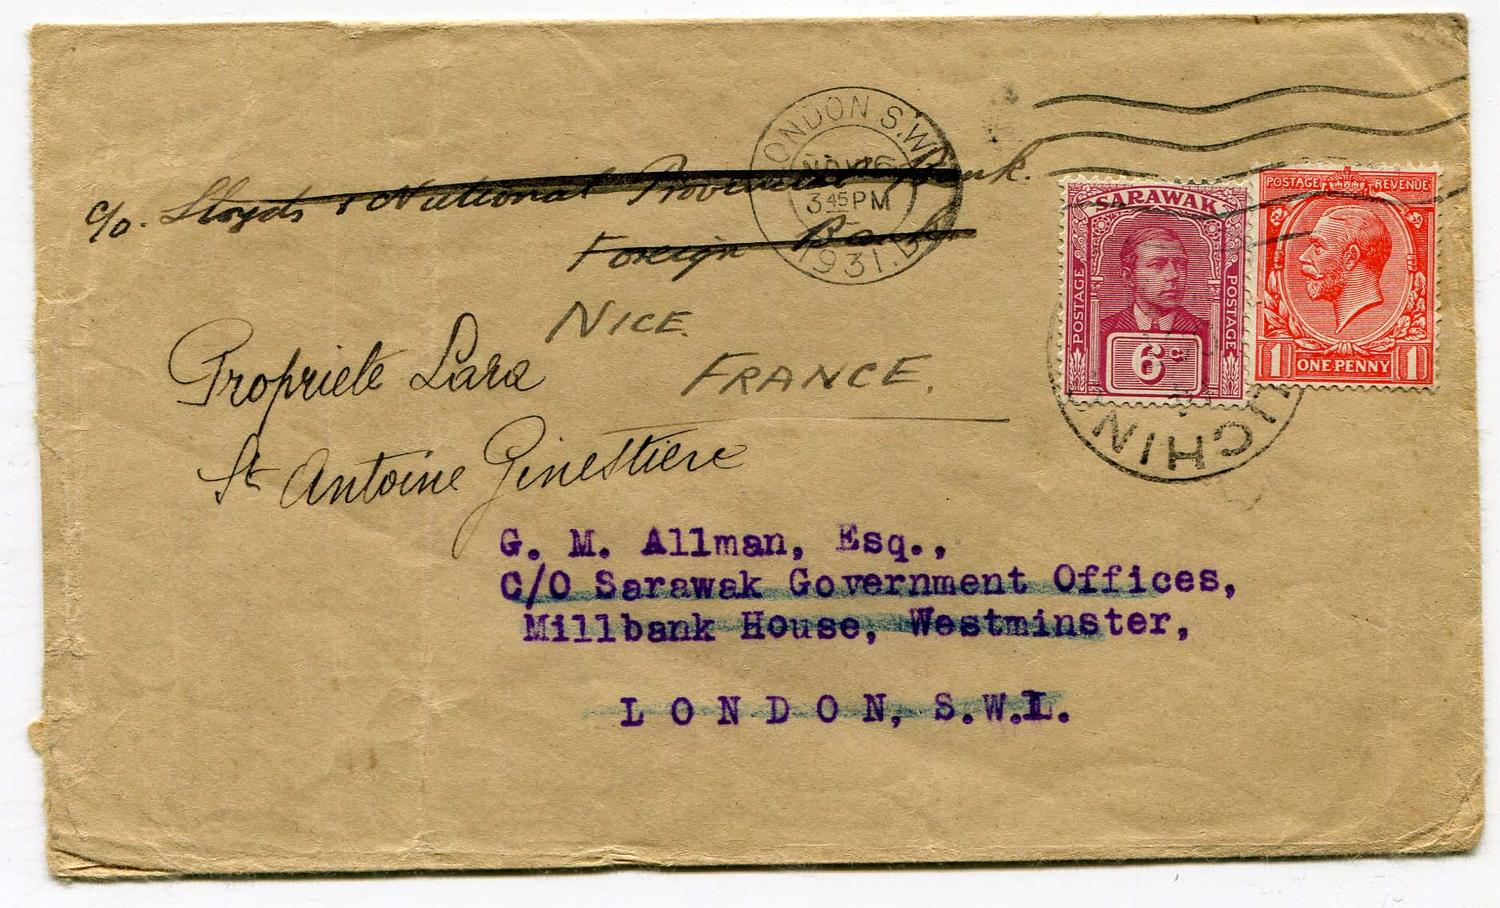 LONDON S.W.
NOV 16
3 45 PM
1931.
c/o. Lloyds & National Provincial Bank.
Foreign Bank
NICE
FRANCE.
Propriete Lara
St Antoine Ginestiere
SARAWAK
POSTAGE
POSTAGE
6c
POSTAGE REVENUE
1 ONE PENNY 1
KUCHING
G. M. Allman, Esq.,
C/O Sarawak Government Offices,
Millbank House, Westminster,
L O N D O N, S.W.1.